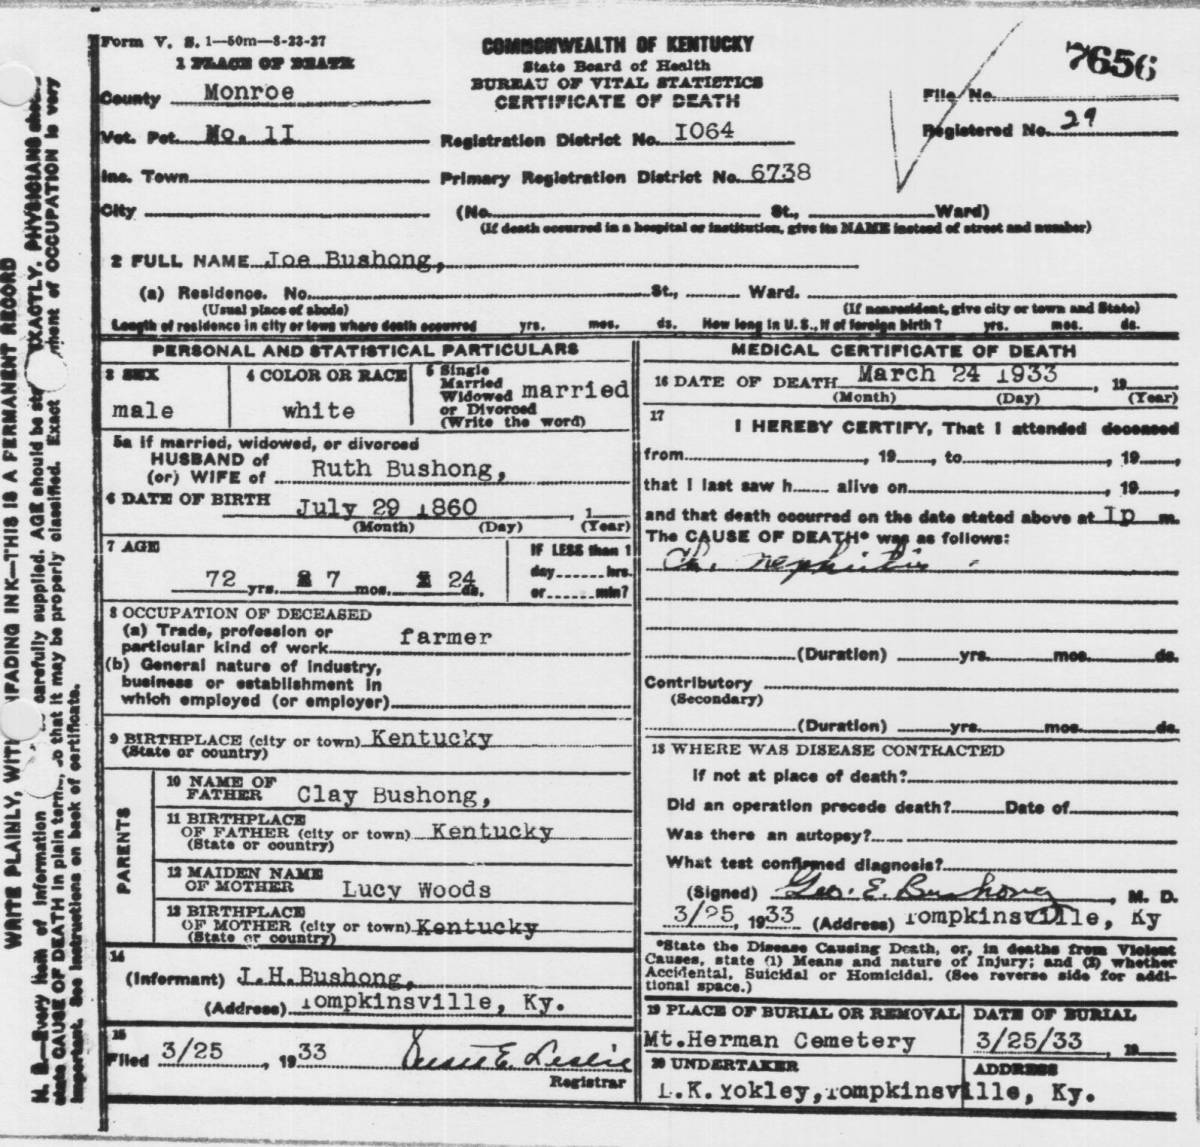 Form V. S. 1—50m—8-23-27
1 PLACE OF DEATH
County Monroe
Vot. Pct. No. 11
Inc. Town
City
COMMONWEALTH OF KENTUCKY
State Board of Health
BUREAU OF VITAL STATISTICS
CERTIFICATE OF DEATH
7656
File No.
Registered No. 29
Registration District No. I064
Primary Registration District No. 6738
(No. St., Ward)
(If death occurred in a hospital or institution, give its NAME instead of street and number)
2 FULL NAME Joe Bushong,
(a) Residence. No. St., Ward.
(Usual place of abode) (If nonresident, give city or town and State)
Length of residence in city or town where death occurred yrs. mos. ds. How long in U. S., if of foreign birth? yrs. mos. ds.
PERSONAL AND STATISTICAL PARTICULARS
3 SEX
male
4 COLOR OR RACE
white
5 Single
Married
Widowed
or Divorced
(Write the word)
married
5a If married, widowed, or divorced
HUSBAND of
(or) WIFE of Ruth Bushong,
6 DATE OF BIRTH July 29 1860, 1
(Month) (Day) (Year)
7 AGE
72 yrs. 7 mos. 24 ds.
IF LESS than 1
day hrs.
or min?
8 OCCUPATION OF DECEASED
(a) Trade, profession or
particular kind of work farmer
(b) General nature of industry,
business or establishment in
which employed (or employer)
9 BIRTHPLACE (city or town) Kentucky
(State or country)
PARENTS
10 NAME OF
FATHER Clay Bushong,
11 BIRTHPLACE
OF FATHER (city or town) Kentucky
(State or country)
12 MAIDEN NAME
OF MOTHER Lucy Woods
13 BIRTHPLACE
OF MOTHER (city or town) Kentucky
(State or country)
14
(Informant) J.H.Bushong,
(Address) Tompkinsville, Ky.
15
Filed 3/25, 1933 E. Leslie
Registrar
MEDICAL CERTIFICATE OF DEATH
16 DATE OF DEATH March 24 1933, 19
(Month) (Day) (Year)
17
I HEREBY CERTIFY, That I attended deceased
from, 19, to, 19,
that I last saw h alive on, 19,
and that death occurred on the date stated above at Ip m.
The CAUSE OF DEATH* was as follows:
Ch. nephritis
(Duration) yrs. mos. ds.
Contributory
(Secondary)
(Duration) yrs. mos. ds.
18 WHERE WAS DISEASE CONTRACTED
If not at place of death?
Did an operation precede death? Date of
Was there an autopsy?
What test confirmed diagnosis?
(Signed) Geo. E. Bushong, M. D.
3/25, 1933 (Address) Tompkinsville, Ky
*State the Disease Causing Death, or, in deaths from Violent
Causes, state (1) Means and nature of Injury; and (2) whether
Accidental, Suicidal or Homicidal. (See reverse side for addi-
tional space.)
19 PLACE OF BURIAL OR REMOVAL
Mt.Herman Cemetery
DATE OF BURIAL
3/25/33, 19
20 UNDERTAKER ADDRESS
L.K.Yokley,Tompkinsville, Ky.
WRITE PLAINLY, WITH UNFADING INK—THIS IS A PERMANENT RECORD
N. B.—Every item of information carefully supplied. AGE should be EXACTLY. PHYSICIANS
state CAUSE OF DEATH in plain terms, so that it may be properly classified. Exact of OCCUPATION is very
important. See instructions on back of certificate.